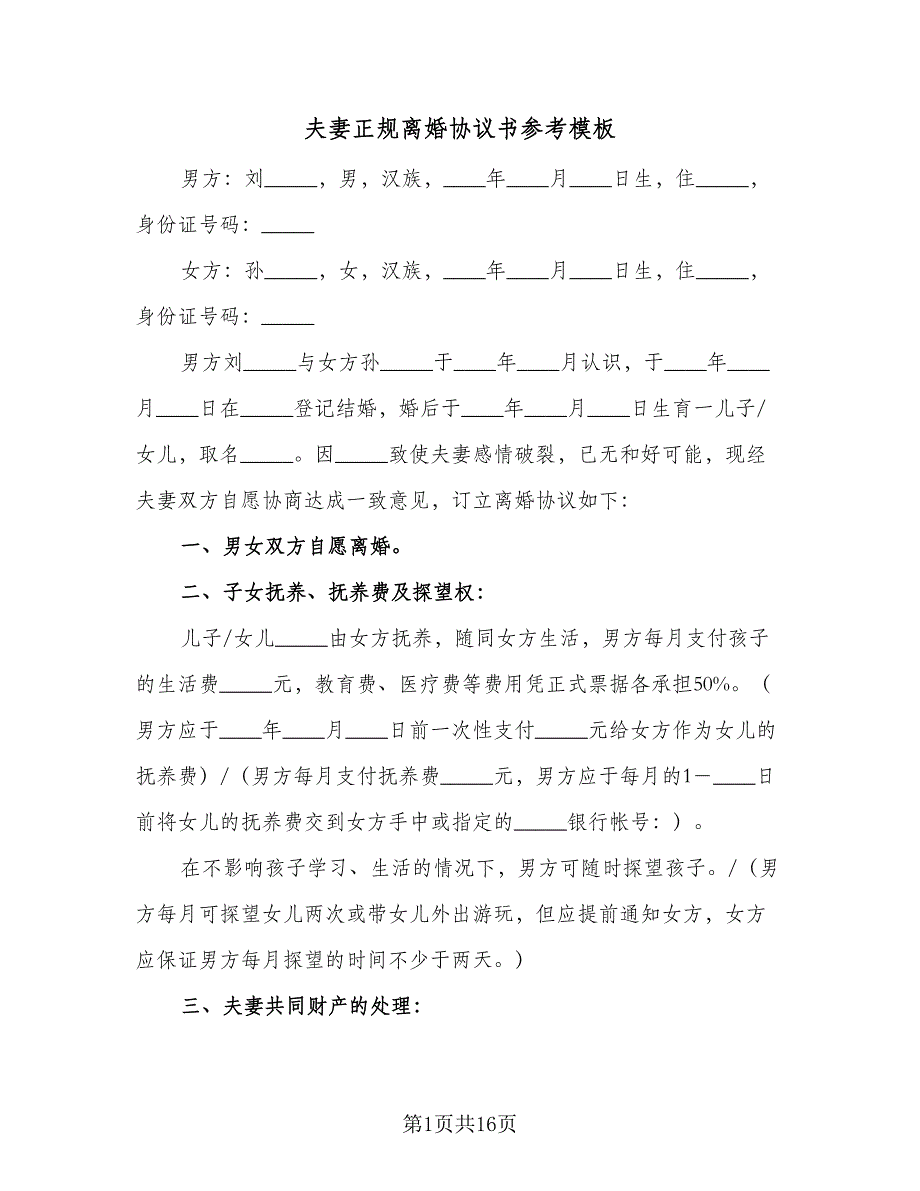 夫妻正规离婚协议书参考模板
男方：刘_____，男，汉族，____年____月____日生，住_____，
身份证号码：_____
女方：孙_____，女，汉族，____年____月____日生，住_____，
身份证号码：_____
男方刘_____与女方孙_____于____年____月认识，于____年____
月____日在_____登记结婚，婚后于____年____月____日生育一儿子/
女儿，取名_____。因_____致使夫妻感情破裂，已无和好可能，现经
夫妻双方自愿协商达成一致意见，订立离婚协议如下：
一、男女双方自愿离婚。
二、子女抚养、抚养费及探望权：
儿子/女儿_____由女方抚养，随同女方生活，男方每月支付孩子
的生活费_____元，教育费、医疗费等费用凭正式票据各承担50%。（
男方应于____年____月____日前一次性支付_____元给女方作为女儿的
抚养费）/（男方每月支付抚养费_____元，男方应于每月的1－____日
前将女儿的抚养费交到女方手中或指定的_____银行帐号：）。
在不影响孩子学习、生活的情况下，男方可随时探望孩子。/（男
方每月可探望女儿两次或带女儿外出游玩，但应提前通知女方，女方
应保证男方每月探望的时间不少于两天。）
三、夫妻共同财产的处理：
第1页共16页